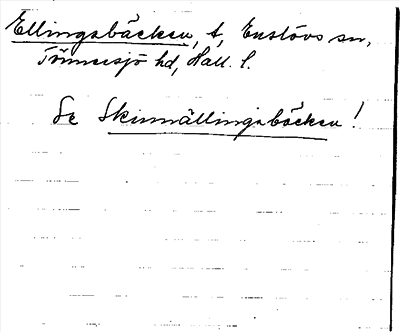 Ellingabäcken, t, Enslövs sn,
Tönnersjö hd, Hall. l.
Se Skinnällingabäcken!